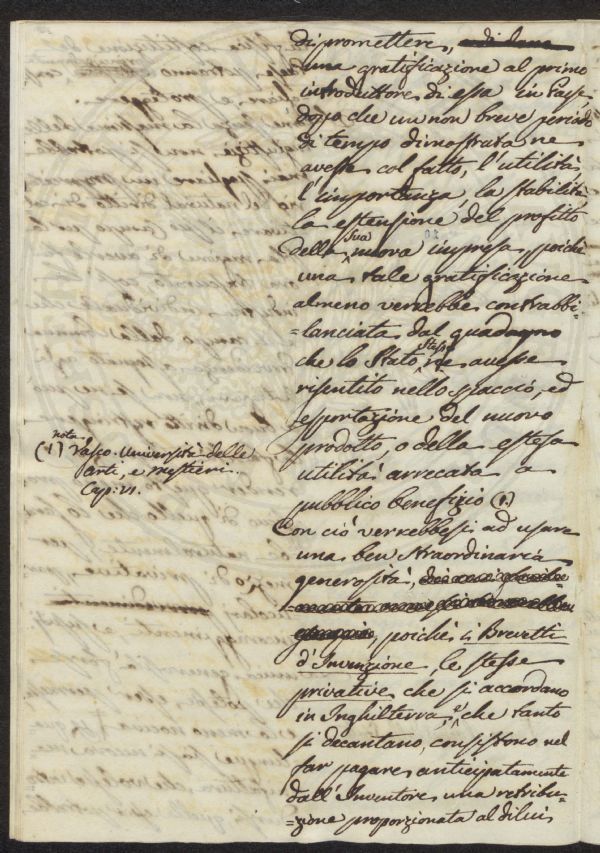 di promettere,
una gratificazione al primo
introduttore di essa in Paese
dopo che un non breve periodo
di tempo dimostrata ne
avesse col fatto, l'utilità,
l'importanza, la stabilità
la estensione del profitto
della sua nuova impresa, poichè
una tale gratificazione
almeno verrebbe contrabbi-
=lanciata dal guadagno
che lo Stato stesso ne avesse
risentito nello spaccio, ed
esportazione del nuovo
prodotto, o della estesa
utilità arrecata a
pubblico benefizio (1.)
Con ciò verrebbesi ad usare
una ben straordinaria
generosità,
poichè i Brevetti
d'Invenzione le stesse
privative che si accordano
in Inghilterra, e che tanto
si decantano, consistono nel
far pagare anticipatamente
dall'Inventore una retribu-
=zione proporzionata al di lui
nota
(1) Vasco. Università delle
Arti, e mestieri.
Cap: VI.